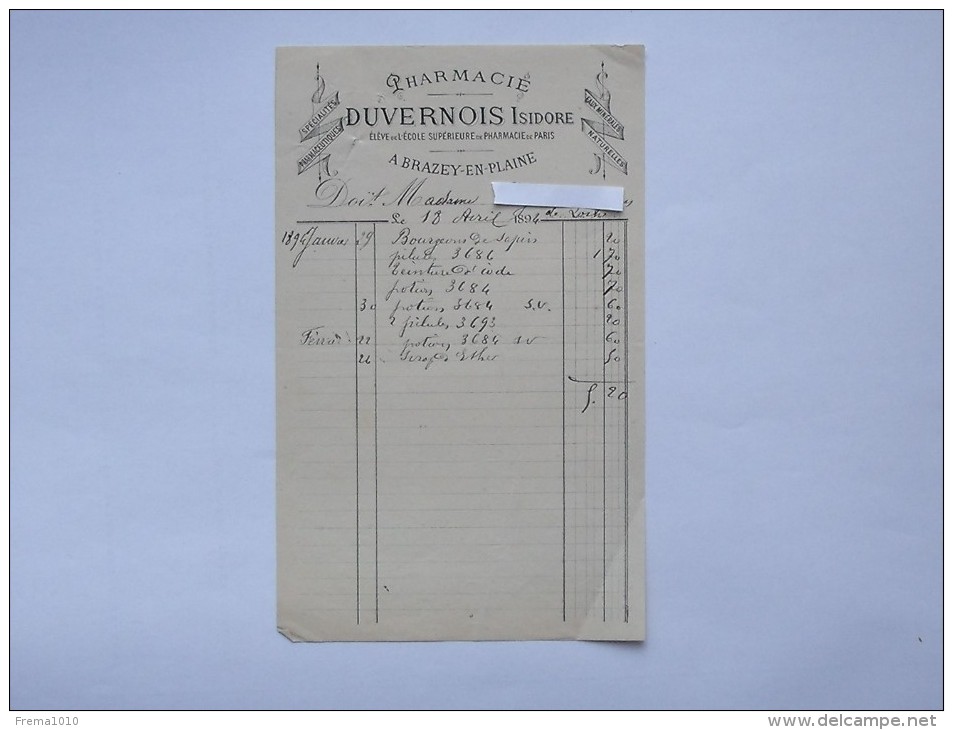 PHARMACIE
DUVERNOIS ISIDORE
ÉLÈVE DE L'ÉCOLE SUPÉRIEURE DE PHARMACIE DE PARIS
A BRAZEY-EN-PLAINE
SPÉCIALITÉS
PHARMACEUTIQUES
EAUX MINÉRALES
NATURELLES
Doit Madame
Le 18 Avril 1894 de
1894 Janvier 29 Bourgeons de Sapins 20
pilules 3686 1 70
teinture d'iode 70
potion 3684 70
30 potion 3684 S.V. 60
2 pilules 3693 20
Février 22 potion 3684 SV 60
26 Ether 50
5. 20
Frema1010
www.delcampe.net